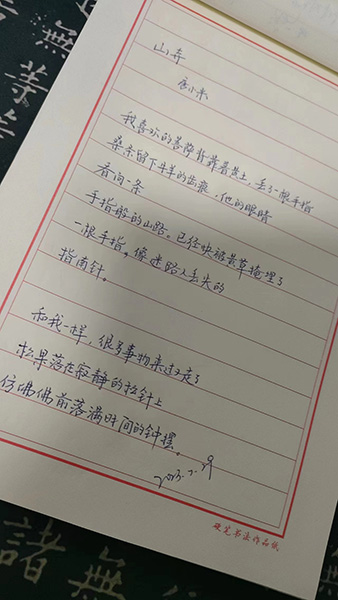 山寺
唐小米
我喜欢的菩萨背靠着黄土,丢了一根手指
桑奈留下牛羊的齿痕,他的眼睛
看向一条
手指般的山路。已经快被荒草掩埋了
一根手指。像迷路人丢失的
指南针。
和我一样,很多事物来过又走了
松果落在寂静的松针上
仿佛佛前落满时间的钟摆。
硬笔书法作品纸
無
等
無
諸無